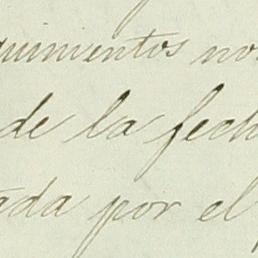 quimientos no
de la fech
ada por el